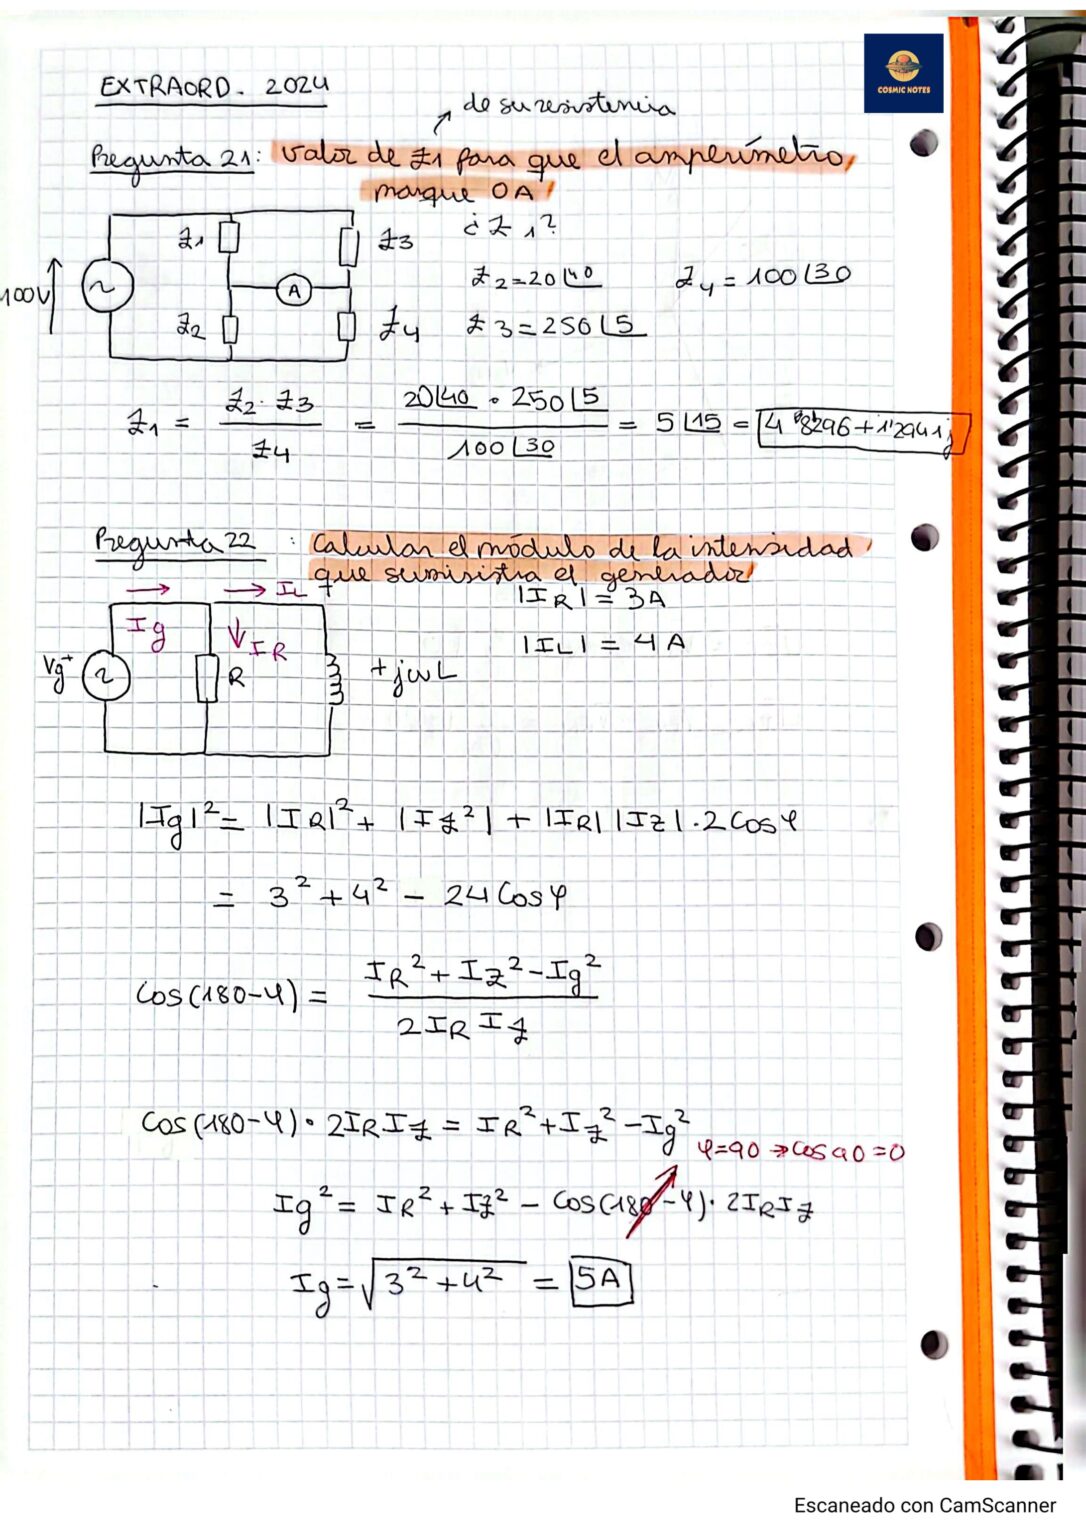 COSMIC NOTES
EXTRAORD. 2024
de su resistencia
Pregunta 21: Valor de Z1 para que el amperímetro,
marque 0A
¿Z1?
Z1
Z3
100V
~
A
Z2
Z4
Z2=20∠40
Z4=100∠30
Z3=250∠5
Z1 = Z2·Z3 / Z4 = 20∠40 · 250∠5 / 100∠30 = 5∠15 = 4'8296+1'2941j
Pregunta 22 : Calcular el módulo de la intensidad
que suministra el generador
IL
Ig
IR
Vg
+
~
R
+jωL
|IR| = 3A
|IL| = 4A
|Ig|²= |IR|²+ |IZ²| + |IR| |IZ|·2Cosφ
= 3²+4² - 24Cosφ
Cos(180-φ)= IR²+IZ²-Ig² / 2IR IZ
Cos(180-φ)·2IR IZ = IR²+IZ²-Ig²
φ=90 → Cos90=0
Ig² = IR²+IZ² - Cos(180-φ)·2IR IZ
Ig=√3²+4² = 5A
Escaneado con CamScanner